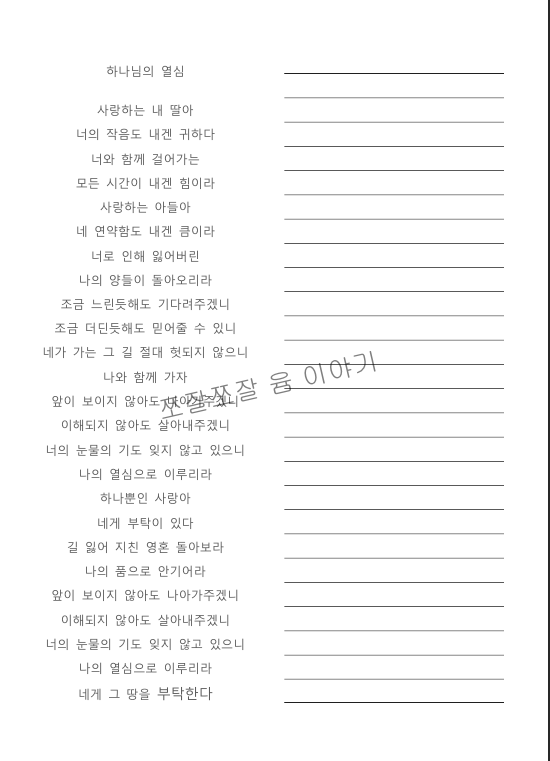 하나님의 열심
사랑하는 내 딸아
너의 작음도 내겐 귀하다
너와 함께 걸어가는
모든 시간이 내겐 힘이라
사랑하는 아들아
네 연약함도 내겐 큼이라
너로 인해 잃어버린
나의 양들이 돌아오리라
조금 느린듯해도 기다려주겠니
조금 더딘듯해도 믿어줄 수 있니
네가 가는 그 길 절대 헛되지 않으니
나와 함께 가자
앞이 보이지 않아도 나아가주겠니
쪼잘쪼잘 윰 이야기
이해되지 않아도 살아내주겠니
너의 눈물의 기도 잊지 않고 있으니
나의 열심으로 이루리라
하나뿐인 사랑아
네게 부탁이 있다
길 잃어 지친 영혼 돌아보라
나의 품으로 안기어라
앞이 보이지 않아도 나아가주겠니
이해되지 않아도 살아내주겠니
너의 눈물의 기도 잊지 않고 있으니
나의 열심으로 이루리라
네게 그 땅을 부탁한다